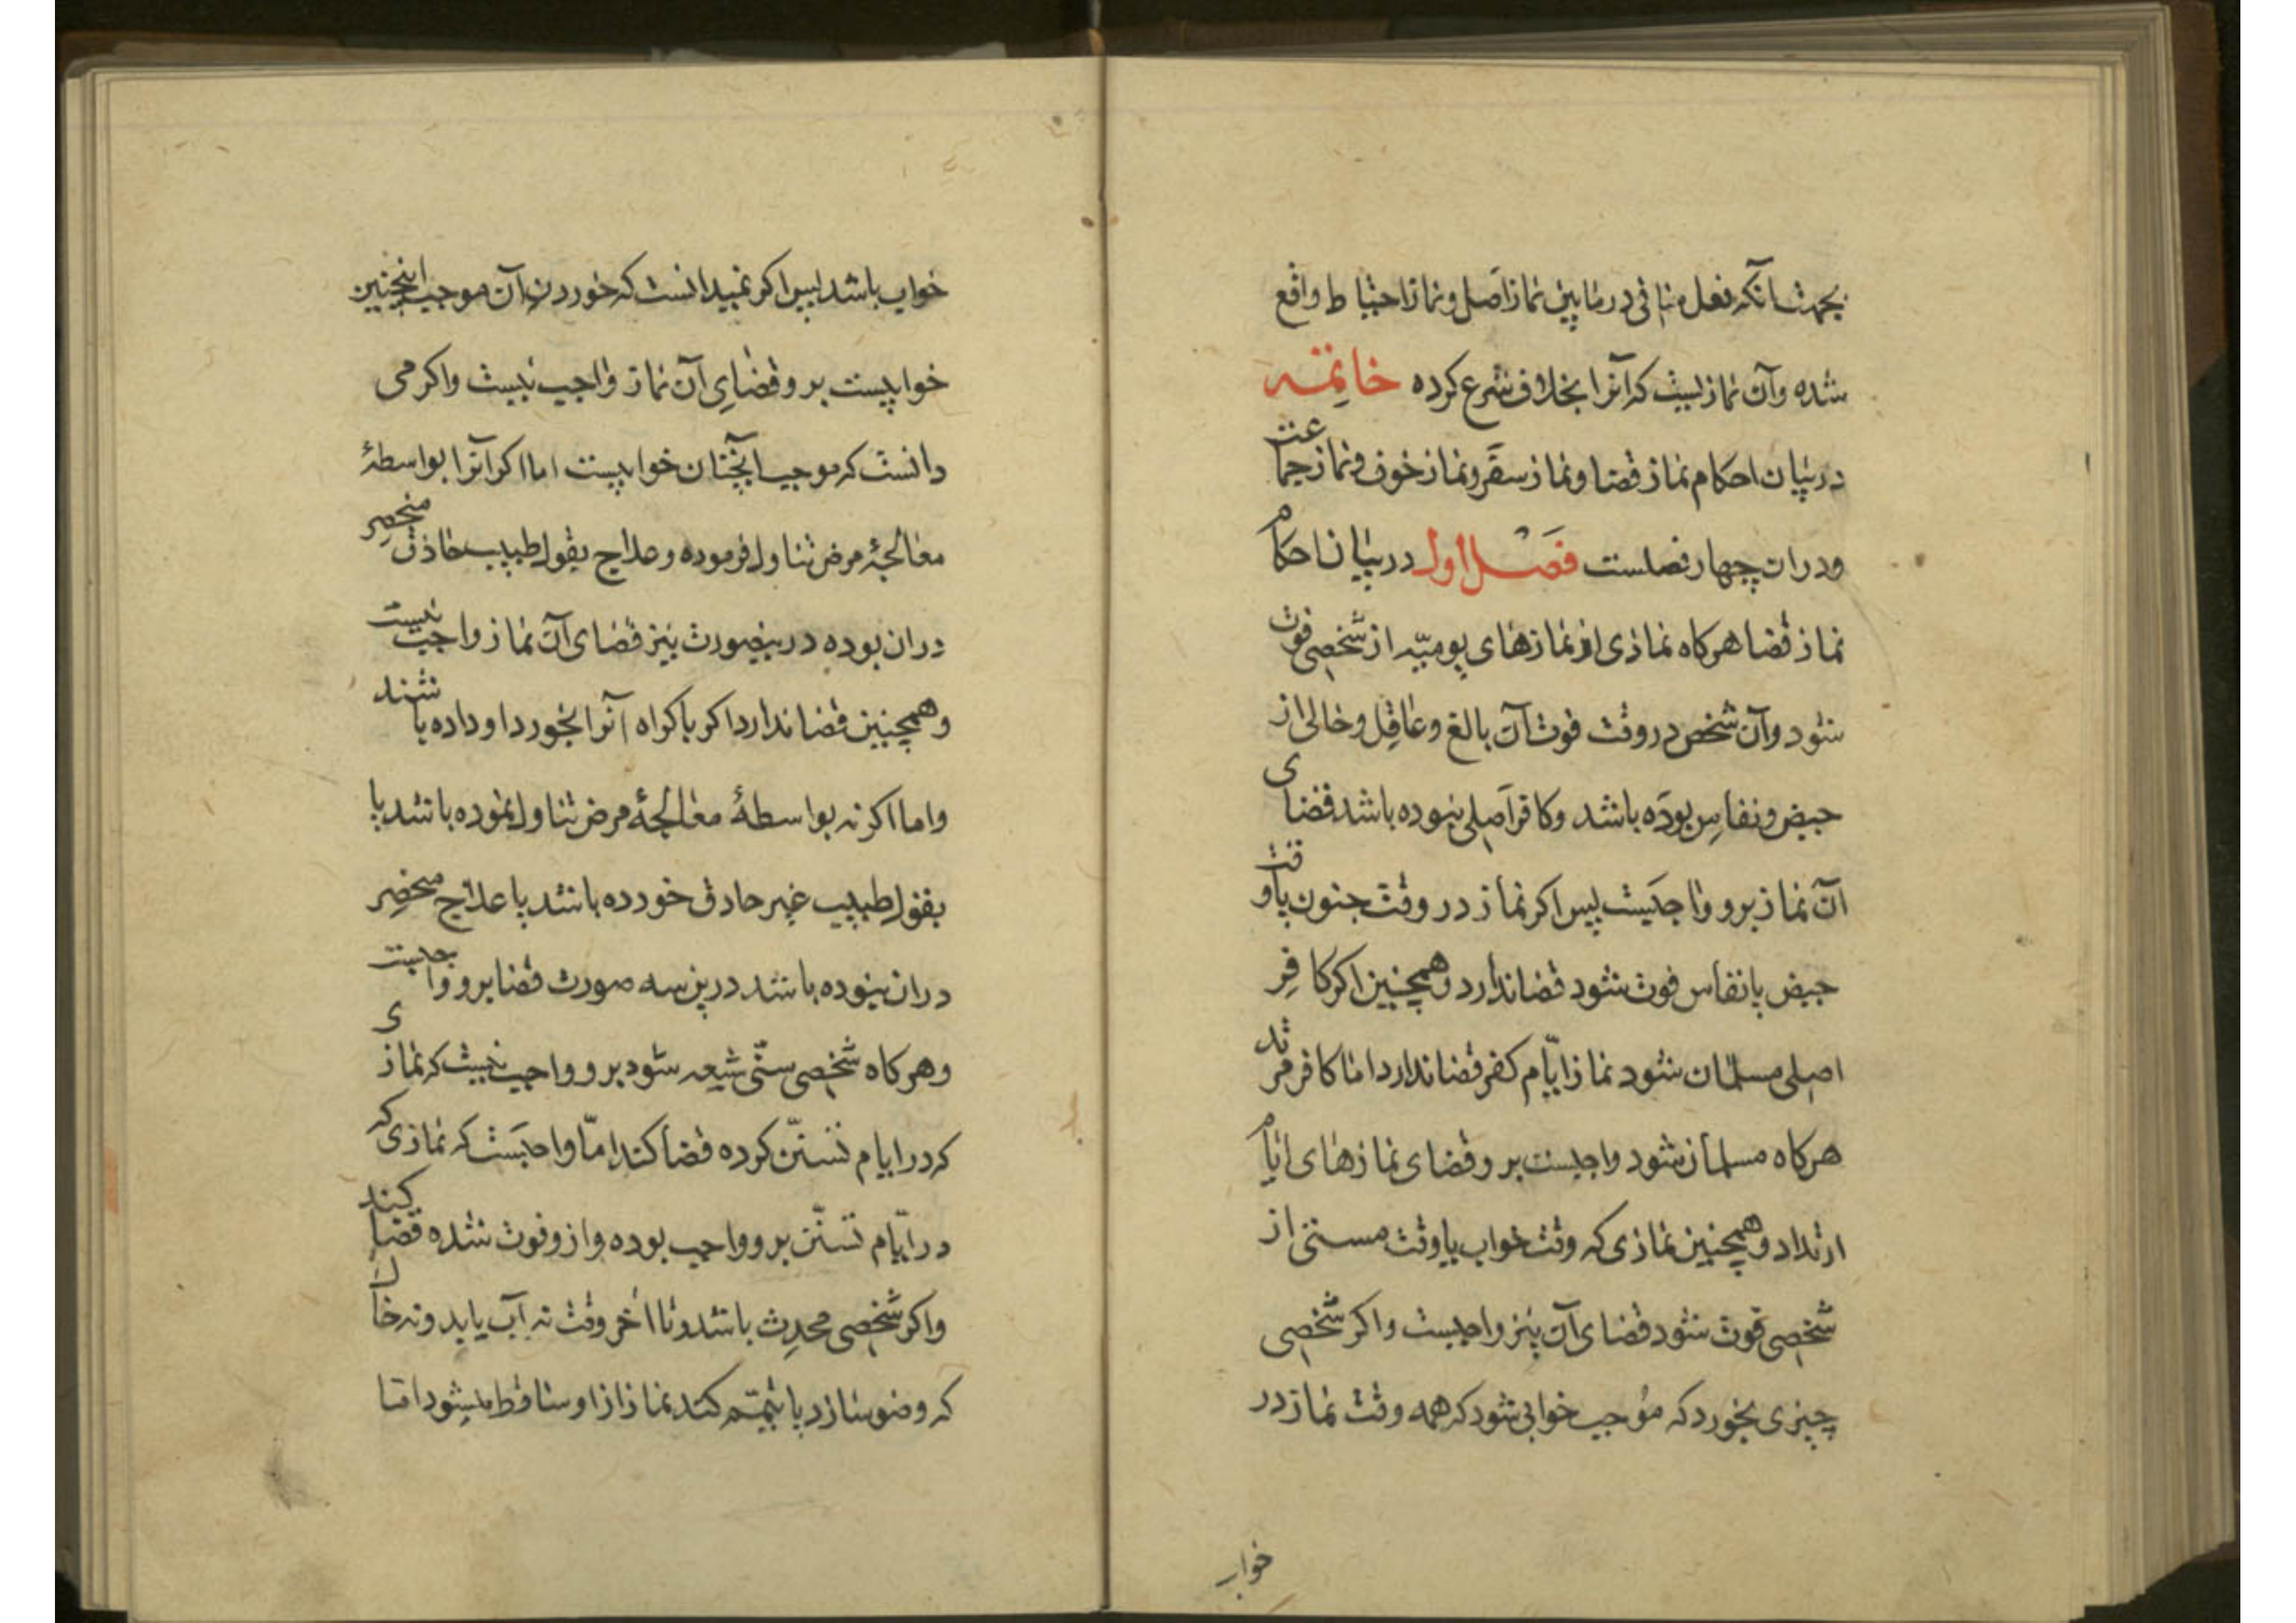 بجهت آنکه فعل منافی در مابین نماز اصل و نماز احتیاط واقع
شده و آن نمازیست که آنرا بخلاف شرع کرده خاتمه
در بیان احکام نماز قضا و نماز سفر و نماز خوف و نماز جماعت
و دران چهار فصلست فصل اول در بیان احکام
نماز قضا هرکاه نمازی از نمازهای یومیّه از شخصی فوت
شود و آن شخص در وقت فوت آن بالغ و عاقل و خالی از
حیض و نفاس بوده باشد و کافر اصلی نبوده باشد قضای
آن نماز برو واجبست پس اکر نماز در وقت جنون یا وقت
حیض یا نفاس فوت شود قضا ندارد و همچنین اکر کافر
اصلی مسلمان شود نماز ایّام کفر قضا ندارد اما کافر مرتد
هرکاه مسلمان شود واجبست برو قضای نمازهای ایام
ارتداد و همچنین نمازی که وقت خواب یا وقت مستی از
شخصی فوت شود قضای آن نیز واجبست و اکر شخصی
چیزی بخورد که موجب خوابی شود که همه وقت نماز در
خواب
خواب باشد پس اکر نمیدانست که خوردن آن موجب اینچنین
خوابیست برو قضای آن نماز واجب نیست و اکر می
دانست که موجب آنچنان خوابیست اما اکر آنرا بواسطهٔ
معالجهٔ مرض تناول فرموده و علاج بقول طبیب حاذق منحصر
دران بوده درینصورت نیز قضای آن نماز واجب نیست
و همچنین قضا ندارد اکر باکراه آنرا بخورد او داده باشند
و اما اکر نه بواسطهٔ معالجهٔ مرض تناول نموده باشد یا
بقول طبیب غیر حاذق خورده باشد یا علاج منحصر
دران نبوده باشد درین سه صورت قضا برو واجبست
و هرکاه شخصی سنّی شیعه شود برو واجب نیست که نمازی
که در ایام تسنّن کرده قضا کند امّا واجبست که نمازی که
در ایّام تسنّن برو واجب بوده و ازو فوت شده قضا کند
و اکر شخصی محدث باشد و تا آخر وقت نه آب یابد و نه خاک
که وضو سازد یا تیمّم کند نماز ازو ساقط میشود امّا